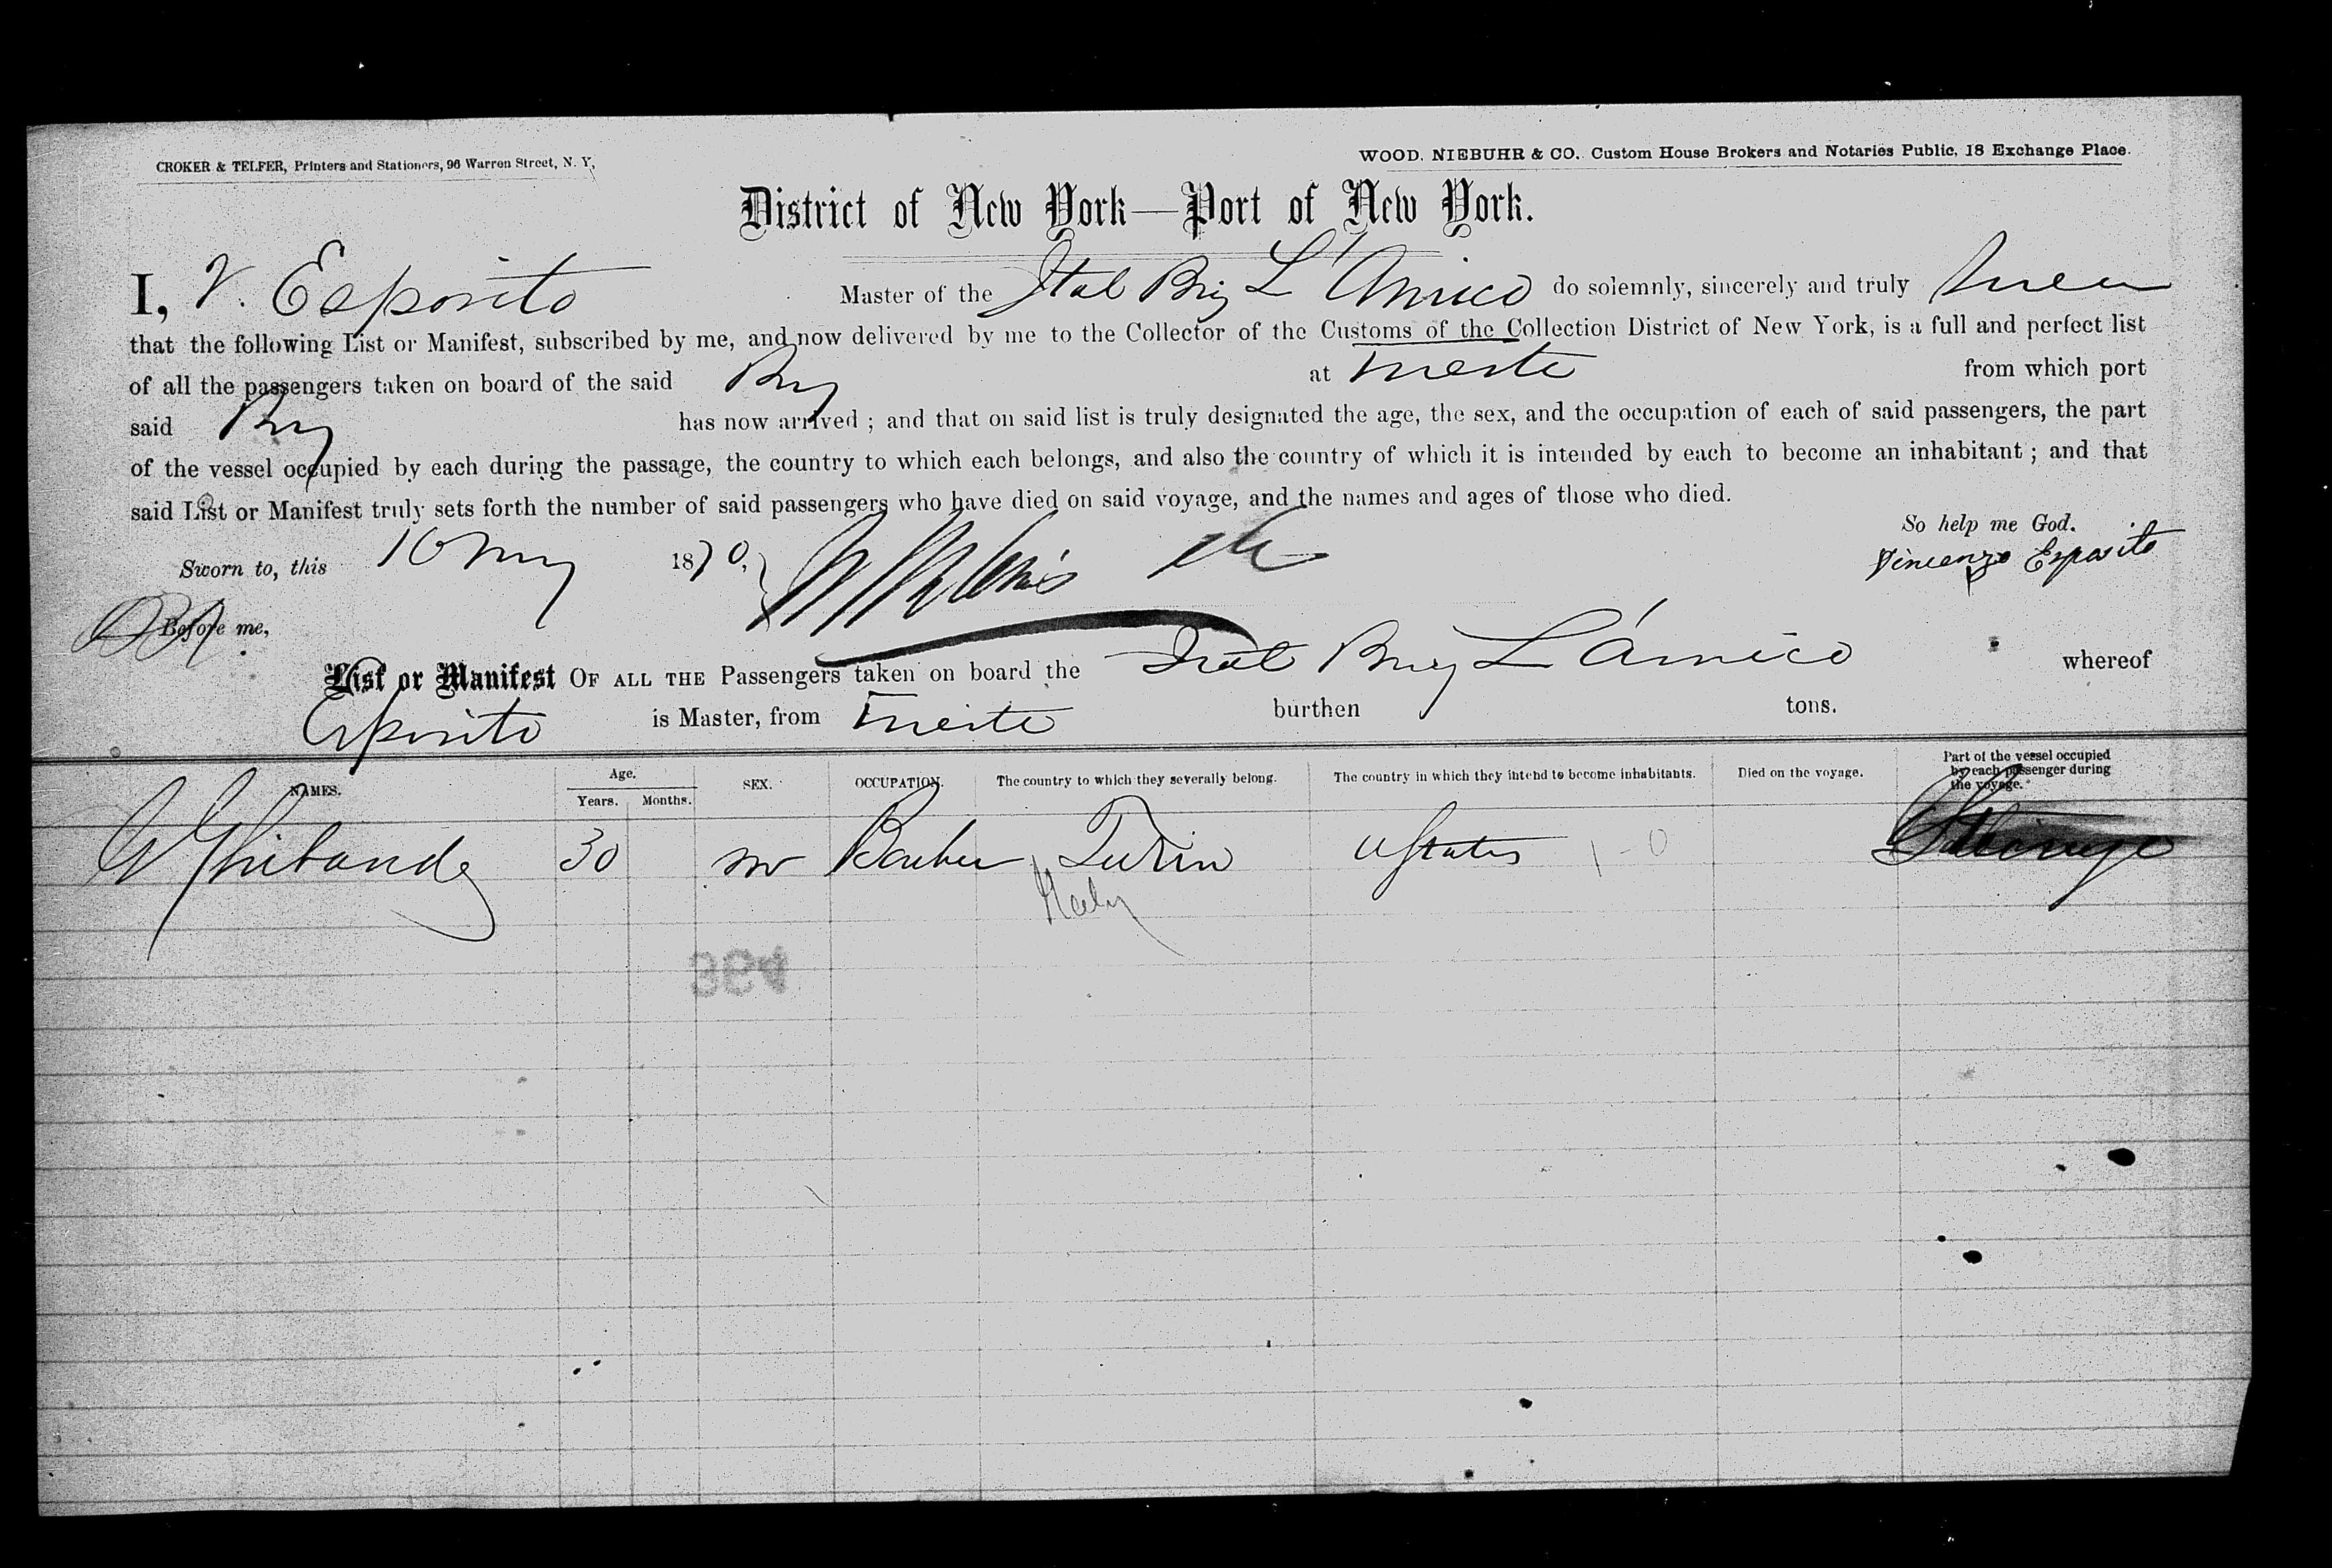 CROKER & TELFER, Printers and Stationers, 96 Warren Street, N. Y,
WOOD. NIEBUHR & CO. Custom House Brokers and Notaries Public, 18 Exchange Place.
District of New York—Port of New York.
I, V. Esposito Master of the Ital Brig L'Amico do solemnly, sincerely and truly swear
that the following List or Manifest, subscribed by me, and now delivered by me to the Collector of the Customs of the Collection District of New York, is a full and perfect list
of all the passengers taken on board of the said Brig at Trieste from which port
said Brig has now arrived ; and that on said list is truly designated the age, the sex, and the occupation of each of said passengers, the part
of the vessel occupied by each during the passage, the country to which each belongs, and also the country of which it is intended by each to become an inhabitant ; and that
said List or Manifest truly sets forth the number of said passengers who have died on said voyage, and the names and ages of those who died.
So help me God.
Sworn to, this 10 May 1870, Vincenzo Esposito
Before me,
List or Manifest OF ALL THE Passengers taken on board the Ital Brig L'Amico whereof
Esposito is Master, from Trieste burthen tons.
NAMES. Age. Years. Months. SEX. OCCUPATION. The country to which they severally belong. The country in which they intend to become inhabitants. Died on the voyage. Part of the vessel occupied by each passenger during the voyage.
30 m Barber Turin UStates 1-0
Italy
384